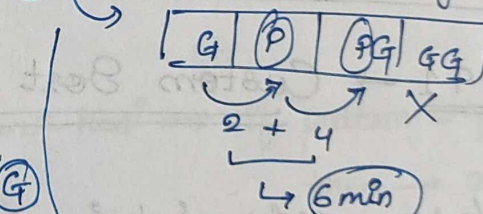 G | P | PG | GG
X
2 + 4
G
↳ 6 min